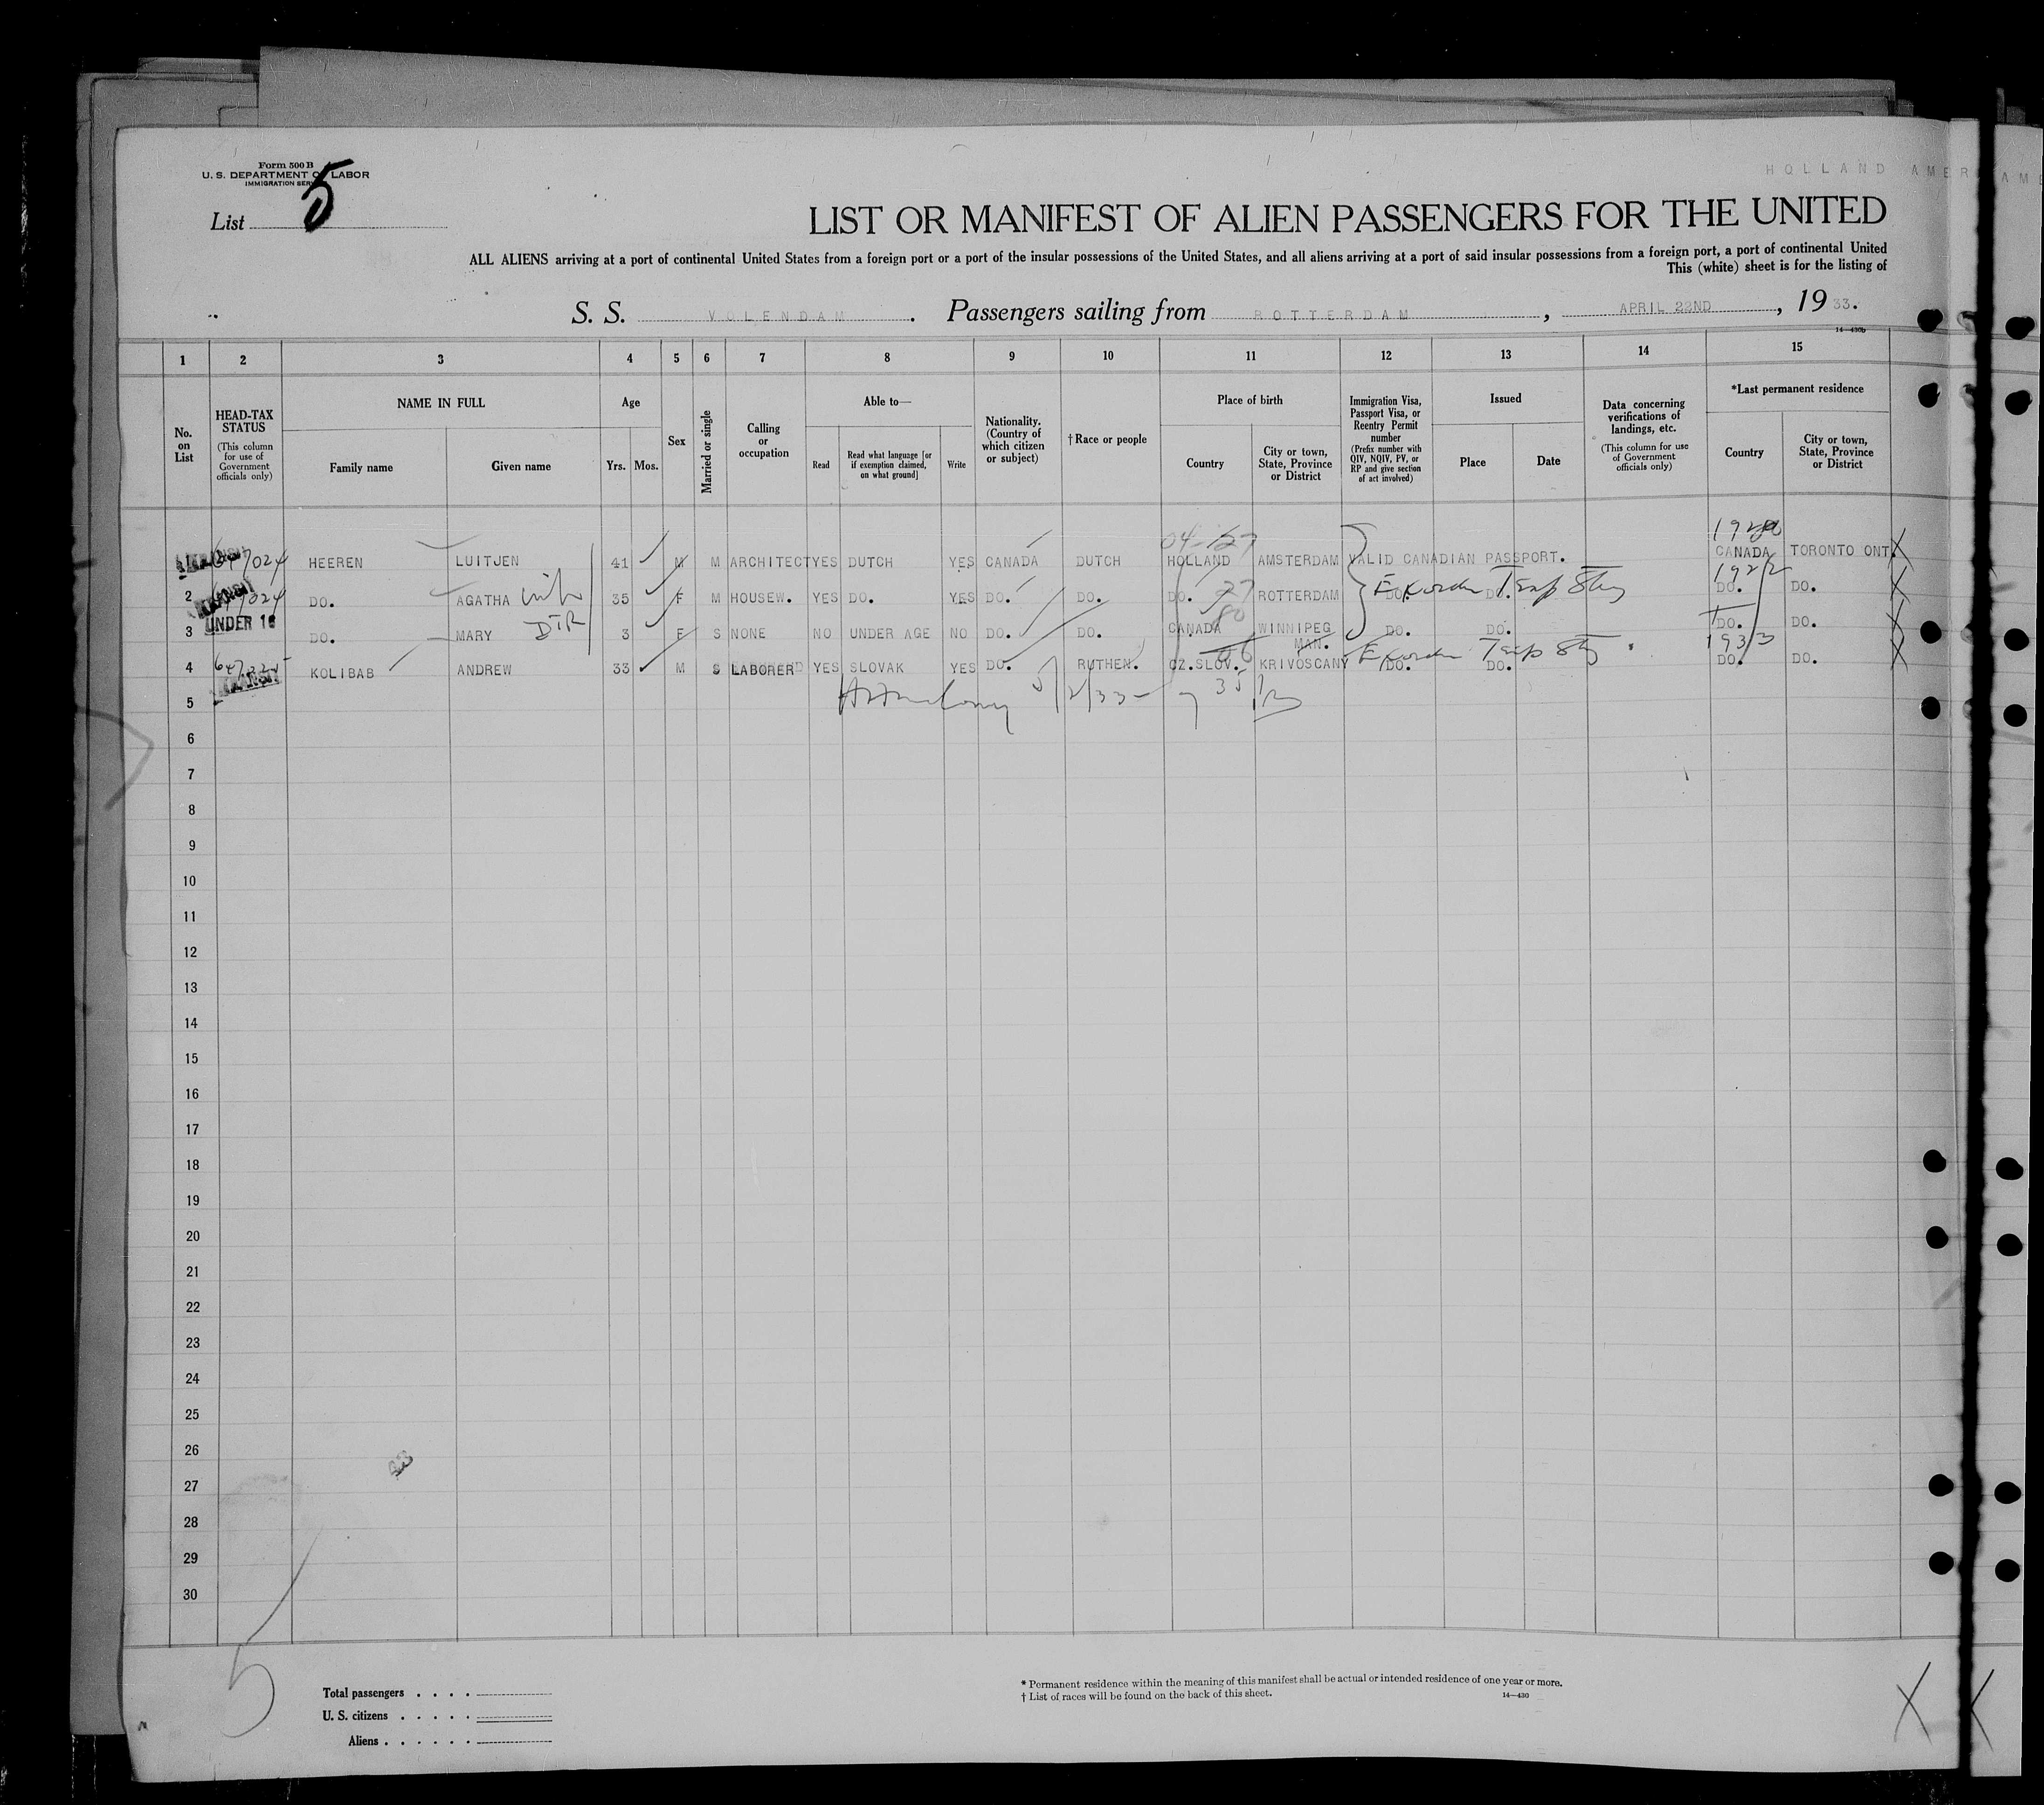 Form 500 B
U. S. DEPARTMENT OF LABOR
IMMIGRATION SERVICE
List 5
HOLLAND AMER
LIST OR MANIFEST OF ALIEN PASSENGERS FOR THE UNITED
ALL ALIENS arriving at a port of continental United States from a foreign port or a port of the insular possessions of the United States, and all aliens arriving at a port of said insular possessions from a foreign port, a port of continental United
This (white) sheet is for the listing of
S. S. VOLENDAM. Passengers sailing from ROTTERDAM, APRIL 22ND, 1933.
14—430b
1 2 3 4 5 6 7 8 9 10 11 12 13 14 15
No. on List
HEAD-TAX STATUS
(This column for use of Government officials only)
NAME IN FULL
Family name
Given name
Age
Yrs.
Mos.
Sex
Married or single
Calling or occupation
Able to—
Read
Read what language [or if exemption claimed, on what ground]
Write
Nationality. (Country of which citizen or subject)
† Race or people
Place of birth
Country
City or town, State, Province or District
Immigration Visa, Passport Visa, or Reentry Permit number
(Prefix number with QIV, NQIV, PV, or RP and give section of act involved)
Issued
Place
Date
Data concerning verifications of landings, etc.
(This column for use of Government officials only)
*Last permanent residence
Country
City or town, State, Province or District
1 TRANSIT HEEREN LUITJEN 41 M M ARCHITECT YES DUTCH YES CANADA DUTCH HOLLAND AMSTERDAM VALID CANADIAN PASSPORT. CANADA TORONTO ONT.
2 TRANSIT DO. AGATHA 35 F M HOUSEW. YES DO. YES DO. DO. DO. ROTTERDAM DO. DO. DO. DO.
3 UNDER 16 DO. MARY 3 F S NONE NO UNDER AGE NO DO. DO. CANADA WINNIPEG MAN. DO. DO. DO. DO.
4 TRANSIT KOLIBAB ANDREW 33 M S LABORER YES SLOVAK YES DO. RUTHEN. CZ.SLOV. KRIVOSCANY DO. DO. DO. DO.
5
6
7
8
9
10
11
12
13
14
15
16
17
18
19
20
21
22
23
24
25
26
27
28
29
30
5
Total passengers . . . .
U. S. citizens . . . . .
Aliens . . . . . .
* Permanent residence within the meaning of this manifest shall be actual or intended residence of one year or more.
† List of races will be found on the back of this sheet.
14—430